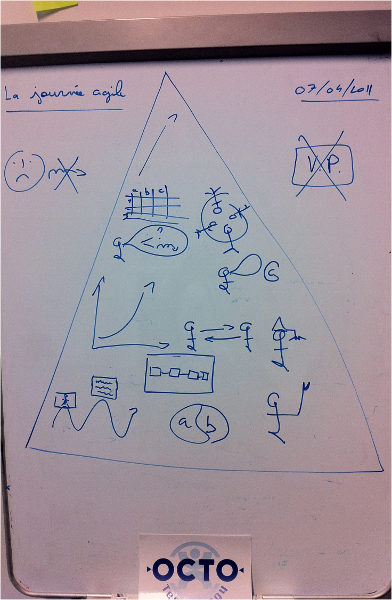 La journée agile
07/04/2011
V.P.
a b c
a b
OCTO